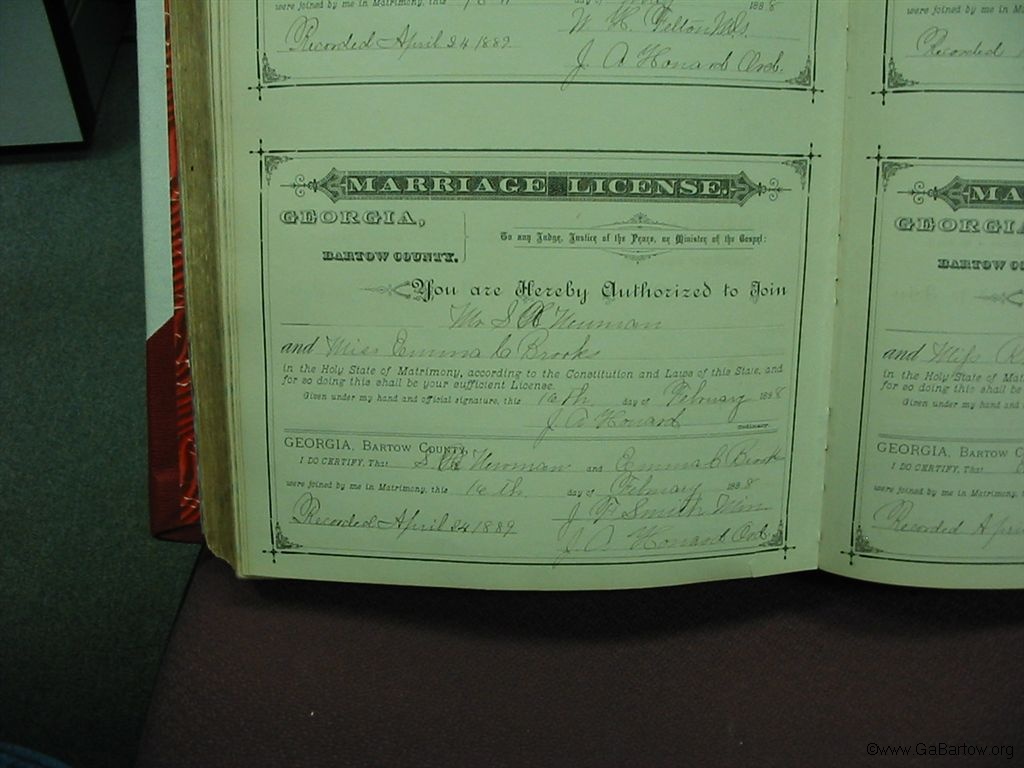 were joined by me in Matrimony, this day of 1888
W. H. Felton M.G.
Recorded April 24 1889
J. A Howard Ord.
MARRIAGE LICENSE.
GEORGIA,
BARTOW COUNTY.
To any Judge, Justice of the Peace, or Minister of the Gospel:
You are Hereby Authorized to Join
Mr S Newman
and Miss Emma C Brooks
in the Holy State of Matrimony, according to the Constitution and Laws of this State, and
for so doing this shall be your sufficient License.
Given under my hand and official signature, this day of February 1888
J. A Howard Ordinary.
GEORGIA, BARTOW COUNTY,
I DO CERTIFY, That S Newman and Emma C Brook
were joined by me in Matrimony, this 16th day of February 1888
J. F Smith Min
Recorded April 24 1889
J. A Howard Ord.
were joined by me in M
Recorded
MA
GEORGIA
BARTOW CO
and Miss
in the Holy State of Mat
for so doing this shall be
Given under my hand and
GEORGIA, BARTOW C
I DO CERTIFY, That
were joined by me in Matrimony,
Recorded Apri
©www.GaBartow.org